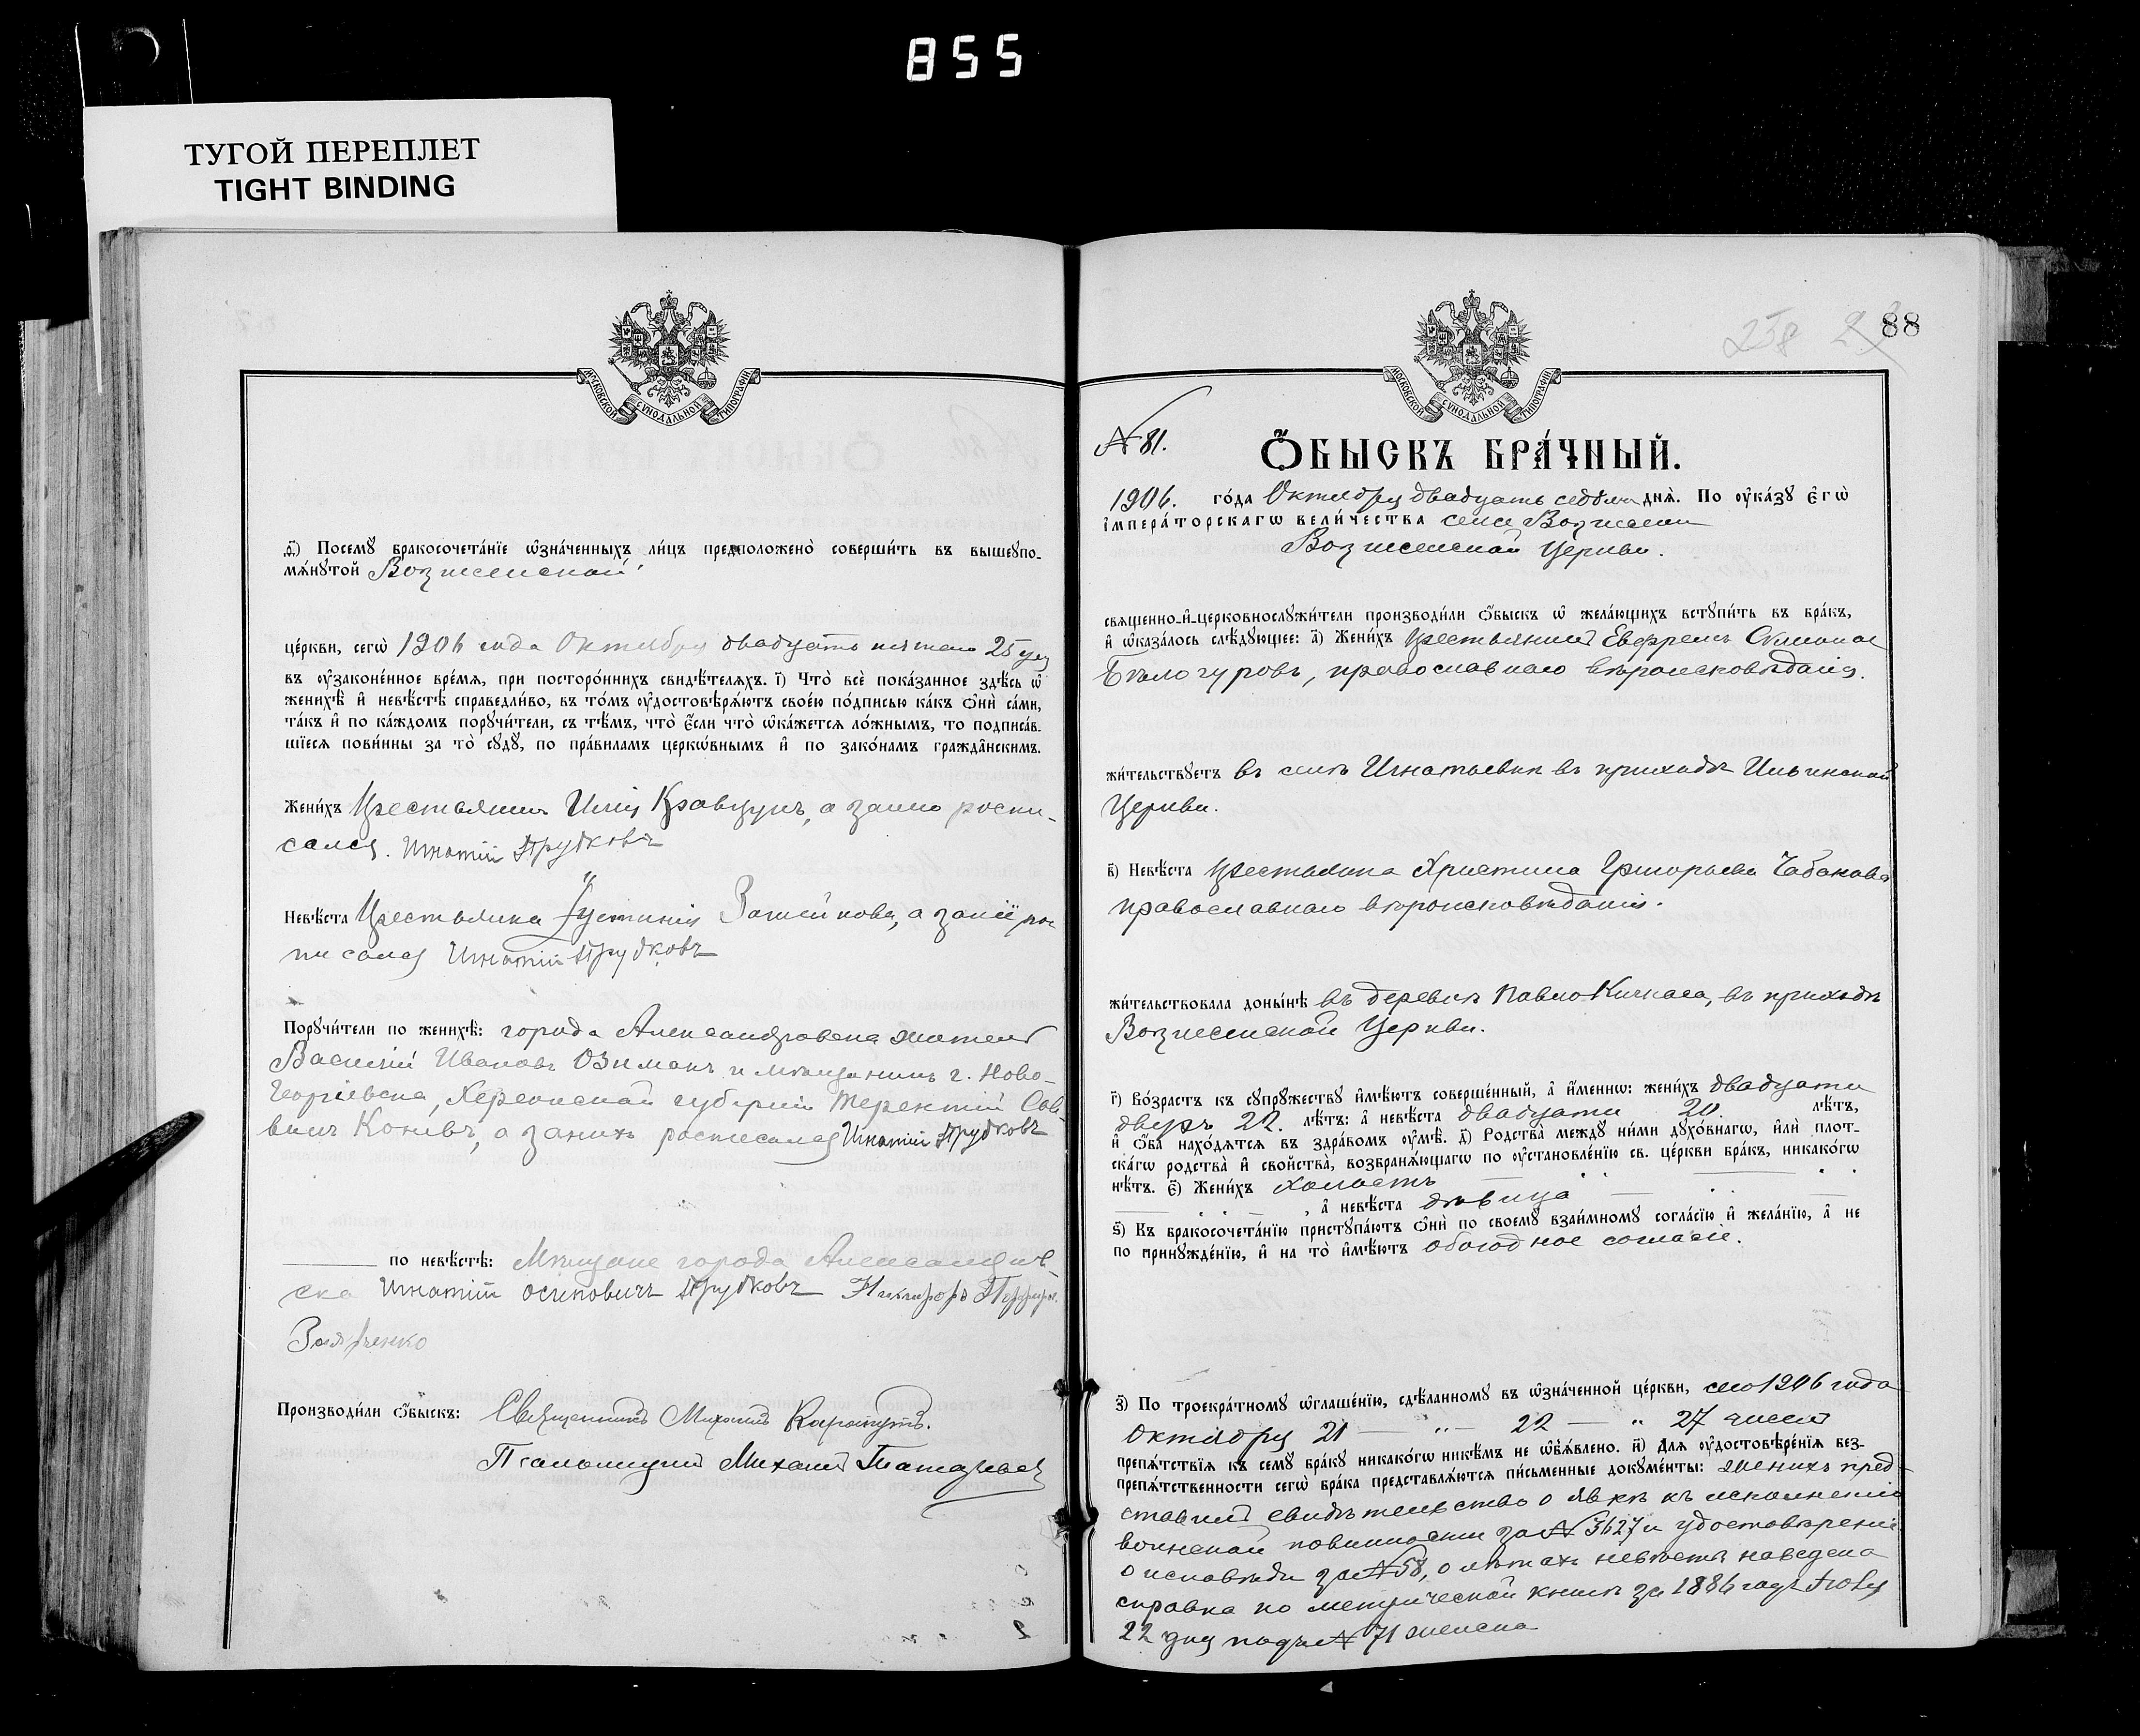 855
ТУГОЙ ПЕРЕПЛЕТ
TIGHT BINDING
МОСКОВСКОЙ СѴНОДАЛЬНОЙ ТИПОГРАФІИ
ѳ҃) Посемꙋ̀ бракосочета́нїе ѡ҆зна́ченныхъ ли́цъ предположено̀ соверши́ть въ вышеꙋпо-
мѧ́нꙋтой Вознесенской
це́ркви, сегѡ̀ 1906 года Октября двадцать пятаго 25 дня
въ ᲂу҆зако́ненное вре́мѧ, при посторо́ннихъ свидѣ́телѧхъ. і҃) Что̀ всѐ пока́занное здѣ́сь ѡ҆
женихѣ̀ и҆ невѣ́стѣ справедли́во, въ то́мъ ᲂу҆достовѣрѧ́ютъ свое́ю по́дписью ка́къ ѻ҆нѝ са́ми,
та́къ и҆ по ка́ждомъ порꙋчи́тели, съ тѣ́мъ, что̀ є҆́сли что̀ ѡ҆ка́жетсѧ ло́жнымъ, то подписа́в-
шїесѧ пови́нны за то̀ сꙋдꙋ̀, по пра́виламъ церко́внымъ и҆ по зако́намъ гражда́нскимъ.
Жени́хъ Крестьянинъ Илія Кравцунъ, а за него роспи-
сался. Игнатій Прудковъ
Невѣ́ста Крестьянка Іустинія а за нее рос
писался Игнатій Прудковъ
Порꙋчи́тели по женихѣ̀: города Александровска житель
Василій Ивановъ Озиманъ и мѣщанинъ г. Ново-
георгіевска, Херсонской губерніи Терентій Сав-
винъ а за нихъ росписался Игнатій Прудковъ
по невѣ́стѣ: Мѣщане города Александров-
ска Игнатій Осиповичъ Прудковъ Никифоръ
Производи́ли ѻ҆́быскъ: Священникъ Михаилъ
Псаломщикъ Михаилъ
258
88
МОСКОВСКОЙ СѴНОДАЛЬНОЙ ТИПОГРАФІИ
№ 81.
Ѻ҆́БЫСКЪ БРА́ЧНЫЙ.
1906. го́да Октября двадцать седьмаго днѧ̀. По ᲂу҆ка́зꙋ є҆гѡ̀
і҆мпера́торскагѡ вели́чества села Вознесенки
Вознесенской Церкви.
свѧще́нно-и҆-церковнослꙋжи́тели производи́ли ѻ҆́быскъ ѡ҆ жела́ющихъ встꙋпи́ть въ бра́къ,
и҆ ѡ҆каза́лось слѣ́дꙋющее: а҃) Жени́хъ Крестьянинъ Евфремъ Симоновъ
Бѣлогуровъ, православнаго вѣроисповѣданія.
жи́тельствꙋетъ въ селѣ Игнатьевкѣ въ приходѣ Ильинской
Церкви.
в҃) Невѣ́ста крестьянка Христина Григорьева Чабанова
православнаго вѣроисповѣданія.
жи́тельствовала доны́нѣ въ деревнѣ Павло-Кичкасѣ, въ приходѣ
Вознесенской Церкви.
г҃) Во́зрастъ къ сꙋпрꙋ́жествꙋ и҆мѣ́ютъ соверше́нный, а҆ и҆́меннѡ: жени́хъ двадцати
двухъ 22. лѣ́тъ: а҆ невѣ́ста двадцати 20. лѣ́тъ,
и҆ ѻ҆́ба нахо́дѧтсѧ въ здра́вомъ ᲂу҆мѣ̀. д҃) Родства̀ междꙋ̀ ни́ми дꙋхо́внагѡ, и҆лѝ плот-
ска́гѡ родства̀ и҆ сво́йства̀, возбранѧ́ющагѡ по ᲂу҆становле́нїю св. це́ркви бра́къ, никако́гѡ
нѣ́тъ. є҃) Жени́хъ холостъ
, а҆ невѣ́ста дѣвица
ѕ҃) Къ бракосочета́нїю пристꙋпа́ютъ ѻ҆нѝ по своемꙋ̀ взаи́мномꙋ согла́сїю и҆ жела́нїю, а҆ не
по принꙋжде́нїю, и҆ на то̀ и҆мѣ́ютъ обоюдное согласіе.
з҃) По троекра́тномꙋ ѡ҆глаше́нїю, сдѣ́ланномꙋ въ ѡ҆зна́ченной це́ркви, сего 1906 года
Октября 21 — „ — 22 — „ 27 чиселъ
препѧ́тствїѧ къ семꙋ̀ бра́кꙋ никако́гѡ никѣ́мъ не ѡ҆б̾ѧ́влено. и҃) Длѧ ᲂу҆достовѣре́нїѧ без-
препѧ́тственности сегѡ̀ бра́ка представлѧ́ютсѧ пи́сьменные докꙋме́нты: женихъ пред-
ставилъ свидѣтельство о явкѣ къ исполненію
воинской повинности за № 3627 и удостовѣреніе
о исповѣди за № 58, о лѣтахъ невѣсты наведена
справка по метрической книгѣ за 1886 годъ Іюля
22 дня подъ № 71 женска